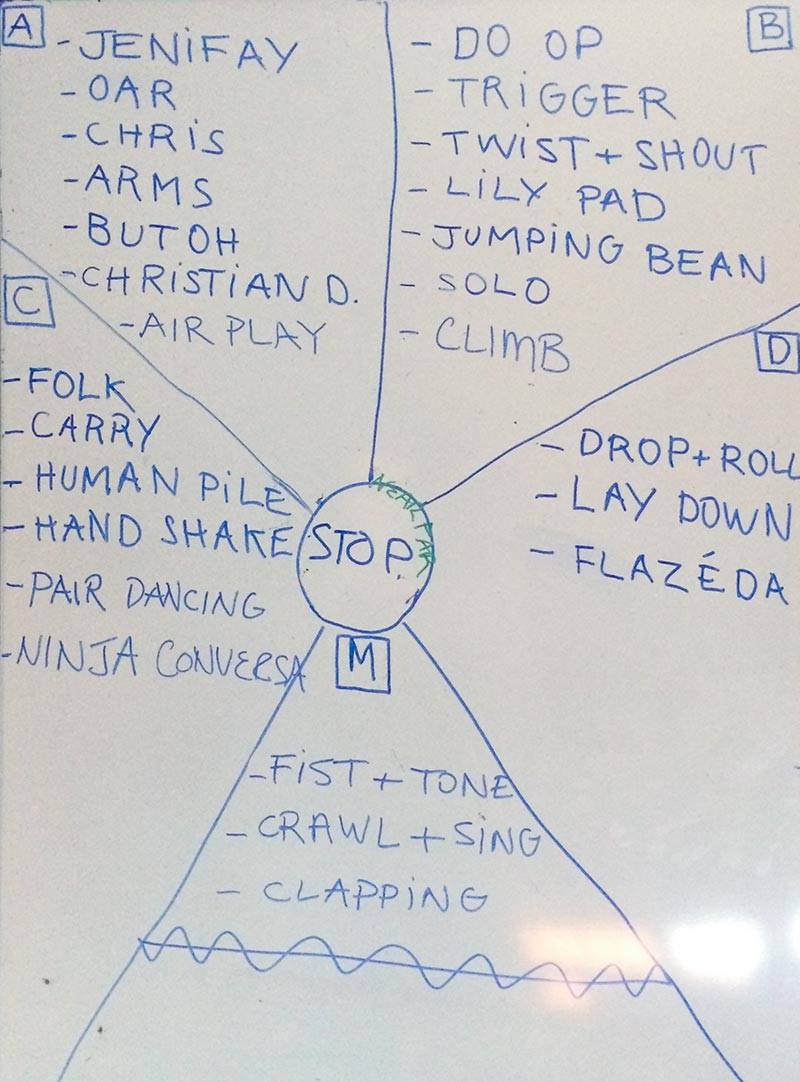 A
- JENiFAY
- OAR
- CHRiS
- ARMS
- BUTOH
- CHRiSTiAN D.
- AIR PLAY
B
- DO OP
- TRiGGER
- TWiST + SHOUT
- LiLY PAD
- JUMPiNG BEAN
- SOLO
- CLIMB
C
- FOLK
- CARRY
- HUMAN PiLE
- HAND SHAKE
- PAIR DANCING
- NINJA CONVERSA
D
- DROP + ROLL
- LAY DOWN
- FLAZÉDA
STOP.
M
- FiST + TONE
- CRAWL + SiNG
- CLAPPiNG